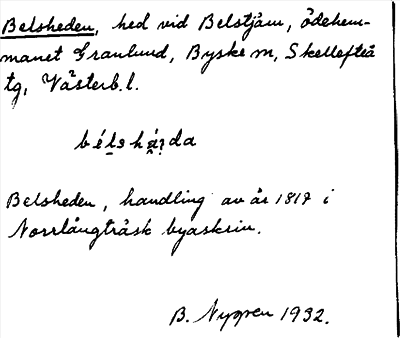 Belsheden, hed vid Belstjärn, ödehem-
manet Granlund, Byske sn, Skellefteå
tg, Västerb.l.
Belsheden, handling av år 1817 i
Norrlångträsk byaskrin.
B. Nygren 1932.